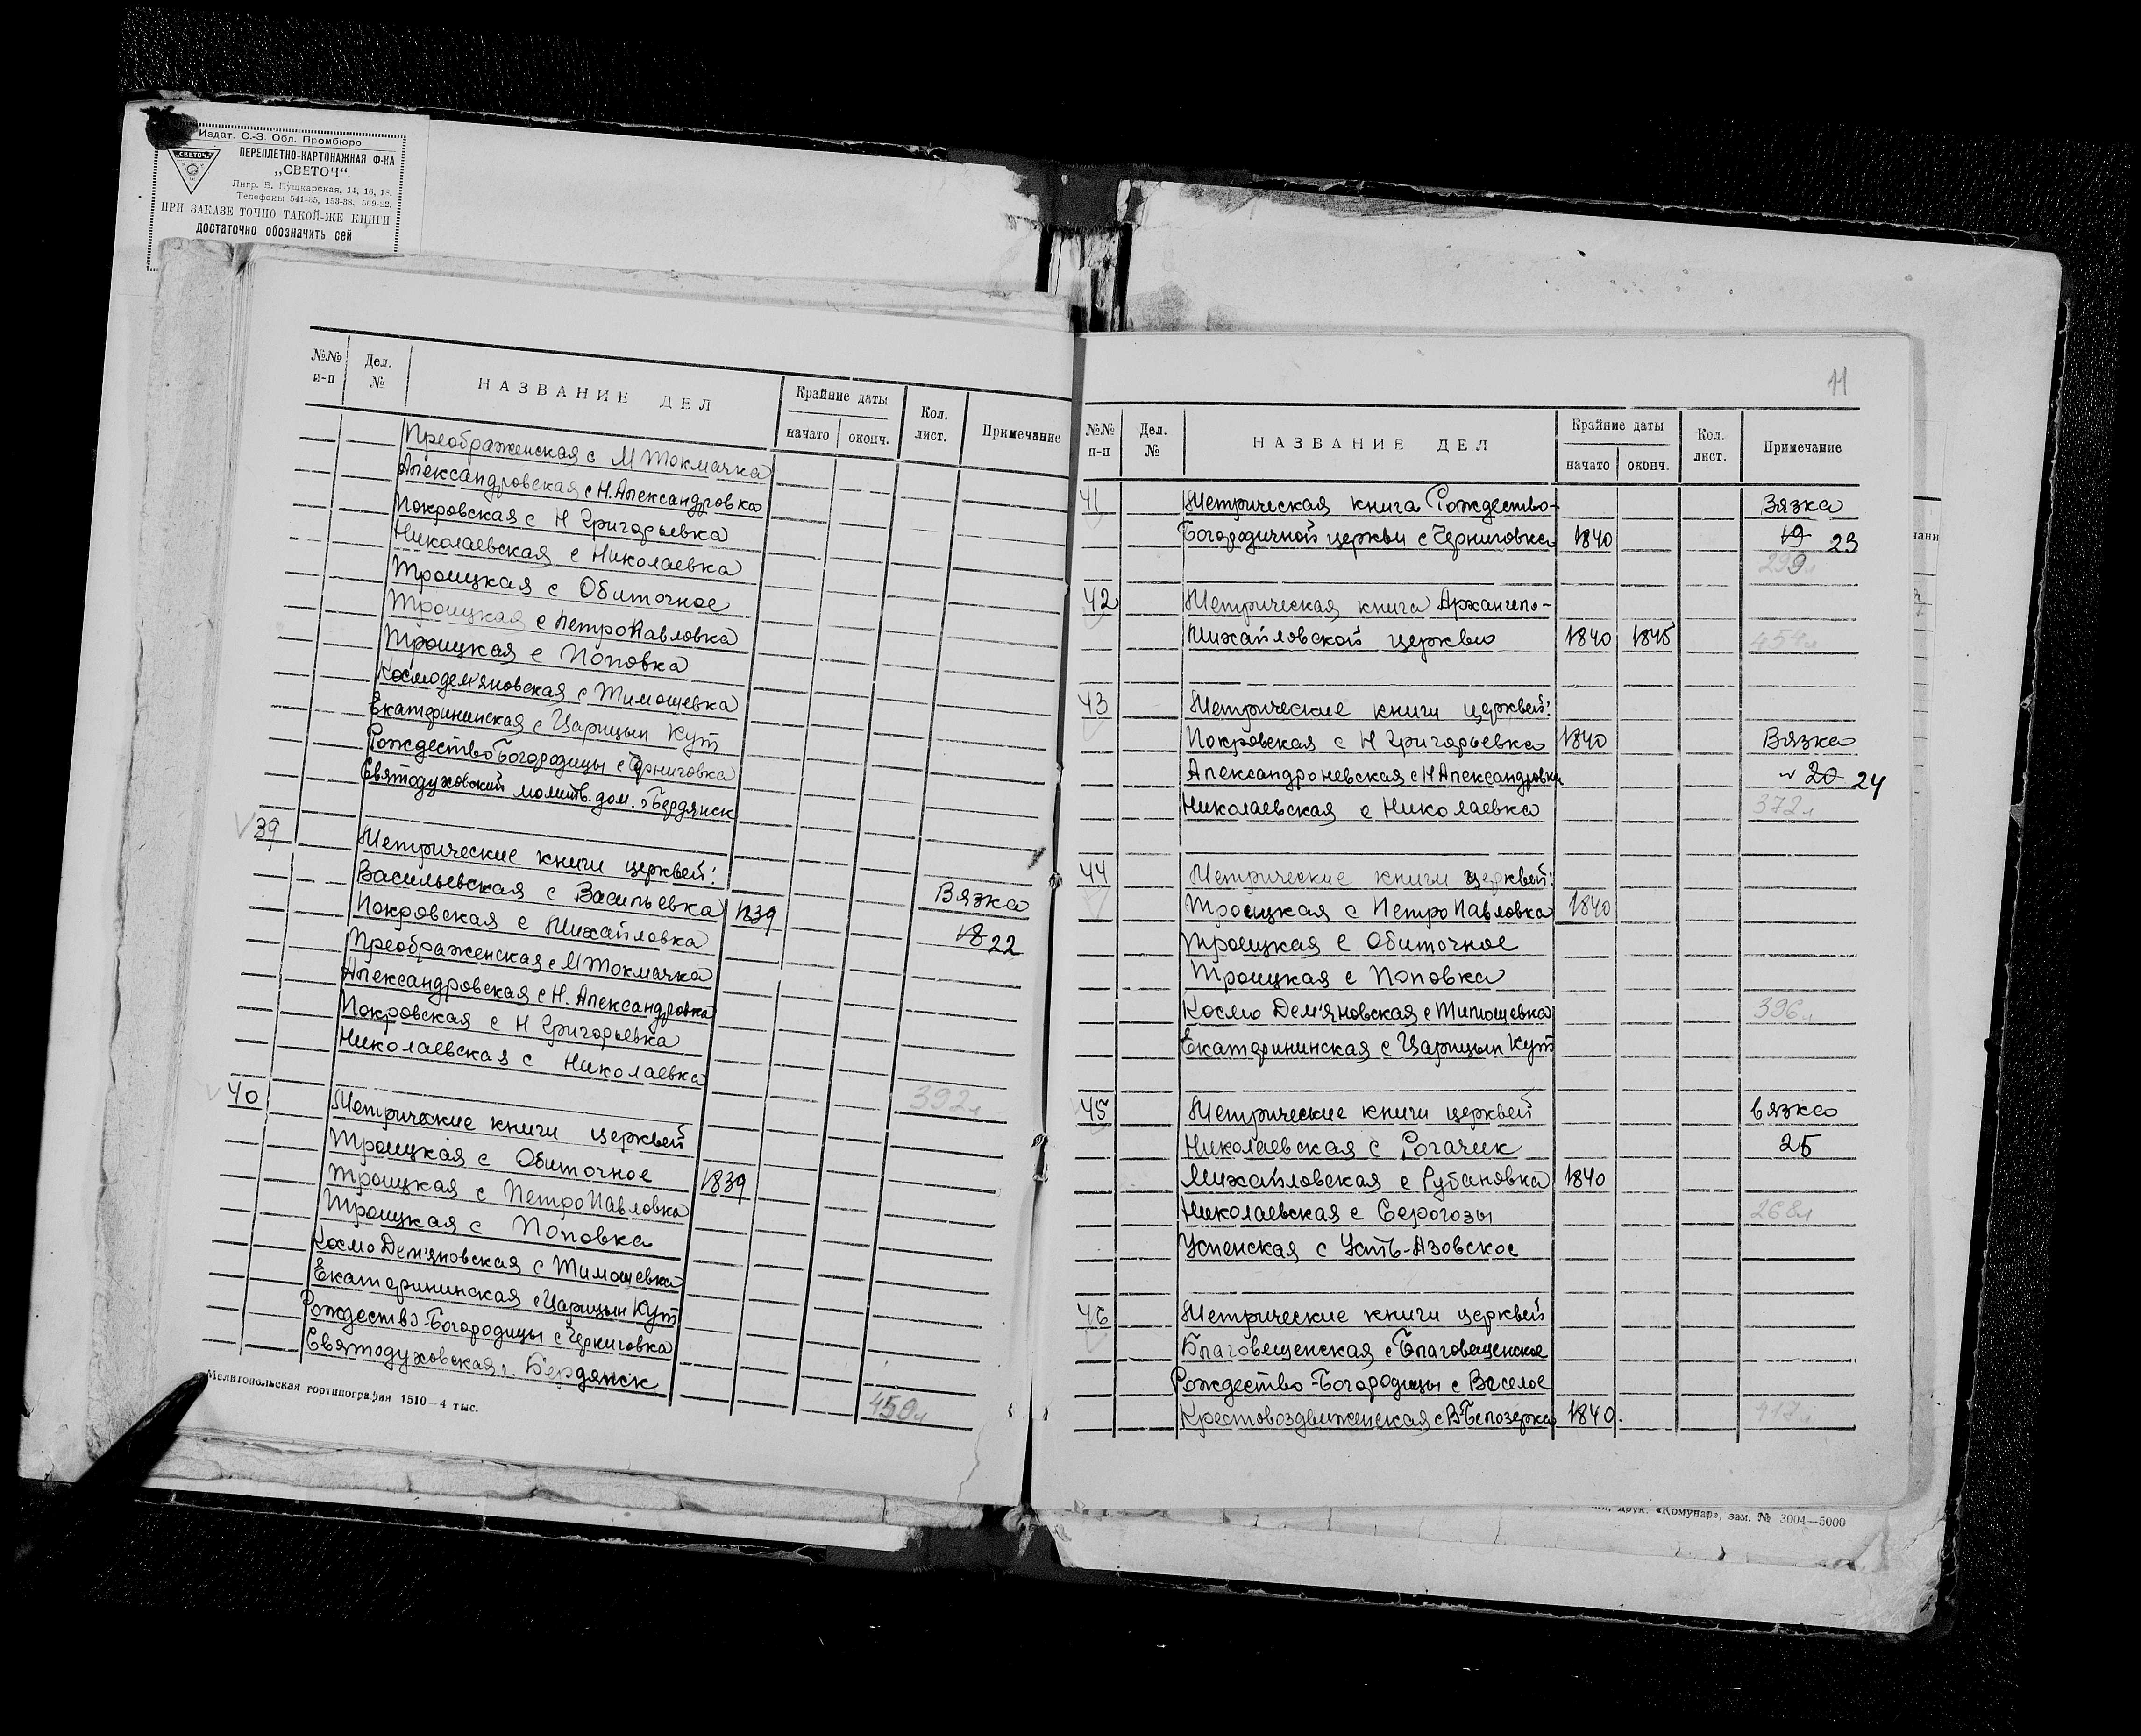 Издат. С.-З. Обл. Промбюро
ПЕРЕПЛЕТНО-КАРТОНАЖНАЯ Ф-КА
"СВЕТОЧ"
„СВЕТОЧ“.
Лнгр. Б. Пушкарская, 14, 16, 18.
Телефоны 541-35, 158-88, 569-22.
ПРИ ЗАКАЗЕ ТОЧНО ТАКОЙ-ЖЕ КНИГИ
достаточно обозначить сей
№№ п-п Дел. № НАЗВАНИЕ ДЕЛ Крайние даты начато оконч. Кол. лист. Примечание
Преображенская с М Токмачка
Александровская с Н. Александровка
Покровская с Н Григорьевка
Николаевская с Николаевка
Троицкая с Обиточное
Троицкая с ПетроПавловка
Троицкая с Поповка
Космодем'яновская с Тимошевка
Екатерининская с Царицын Кут
Рождество Богородицы с Черниговка
Святодуховский молитв. дом. г Бердянск
39 Метрические книги церквей:
Васильевская с Васильевка 1839 Вязка
Покровская с Михайловка 18 22
Преображенская с М Токмачка
Александровская с Н. Александровка
Покровская с Н Григорьевка
Николаевская с Николаевка
392л
40 Метрические книги церквей
Троицкая с Обиточное 1839
Троицкая с ПетроПавловка
Троицкая с Поповка
Космо Дем'яновская с Тимошевка
Екатерининская с Царицын Кут
Рождество-Богородицы с Черниговка
Святодуховская г. Бердянск
450л
Мелитопольская гортипография 1510—4 тыс.
11
№№ п-п Дел. № НАЗВАНИЕ ДЕЛ Крайние даты начато оконч. Кол. лист. Примечание
41 Метрическая книга Рождество- Вязка
Богородичной церкви с Черниговка 1840 19 23
299л
42 Метрическая книга Архангело-
Михайловской церквы 1840 1845
43 Метрические книги церквей:
Покровская с Н Григорьевка 1840 Вязка
Александроневская с Н Александровка 20 24
Николаевская с Николаевка 372л
44 Метрические книги церквей:
Троицкая с ПетроПавловка 1840
Троицкая с Обиточное
Троицкая с Поповка
Космо Дем'яновская с Тимошевка 396л
Екатерининская с Царицын Кут
45 Метрические книги церквей вязка
Николаевская с Рогачик 25
Михайловская с Рубановка 1840
Николаевская с Серогозы 268л
Успенская с Усть-Азовское
46 Метрические книги церквей
Благовещенская с Благовещенское
Рождество-Богородицы с Веселое
Крестовоздвиженская с В-Белозерка 1840. 417л
друк. «Комунар», зам. № 3004—5000